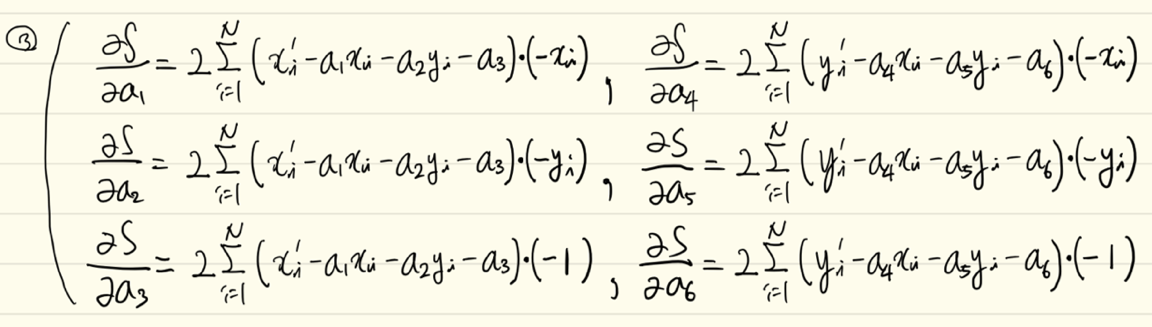 ③ ( ∂S/∂a₁ = 2 Σ_{i=1}^{N} (xᵢ′ - a₁xᵢ - a₂yᵢ - a₃)·(-xᵢ) , ∂S/∂a₄ = 2 Σ_{i=1}^{N} (yᵢ′ - a₄xᵢ - a₅yᵢ - a₆)·(-xᵢ)
∂S/∂a₂ = 2 Σ_{i=1}^{N} (xᵢ′ - a₁xᵢ - a₂yᵢ - a₃)·(-yᵢ) , ∂S/∂a₅ = 2 Σ_{i=1}^{N} (yᵢ′ - a₄xᵢ - a₅yᵢ - a₆)·(-yᵢ)
∂S/∂a₃ = 2 Σ_{i=1}^{N} (xᵢ′ - a₁xᵢ - a₂yᵢ - a₃)·(-1) , ∂S/∂a₆ = 2 Σ_{i=1}^{N} (yᵢ′ - a₄xᵢ - a₅yᵢ - a₆)·(-1)